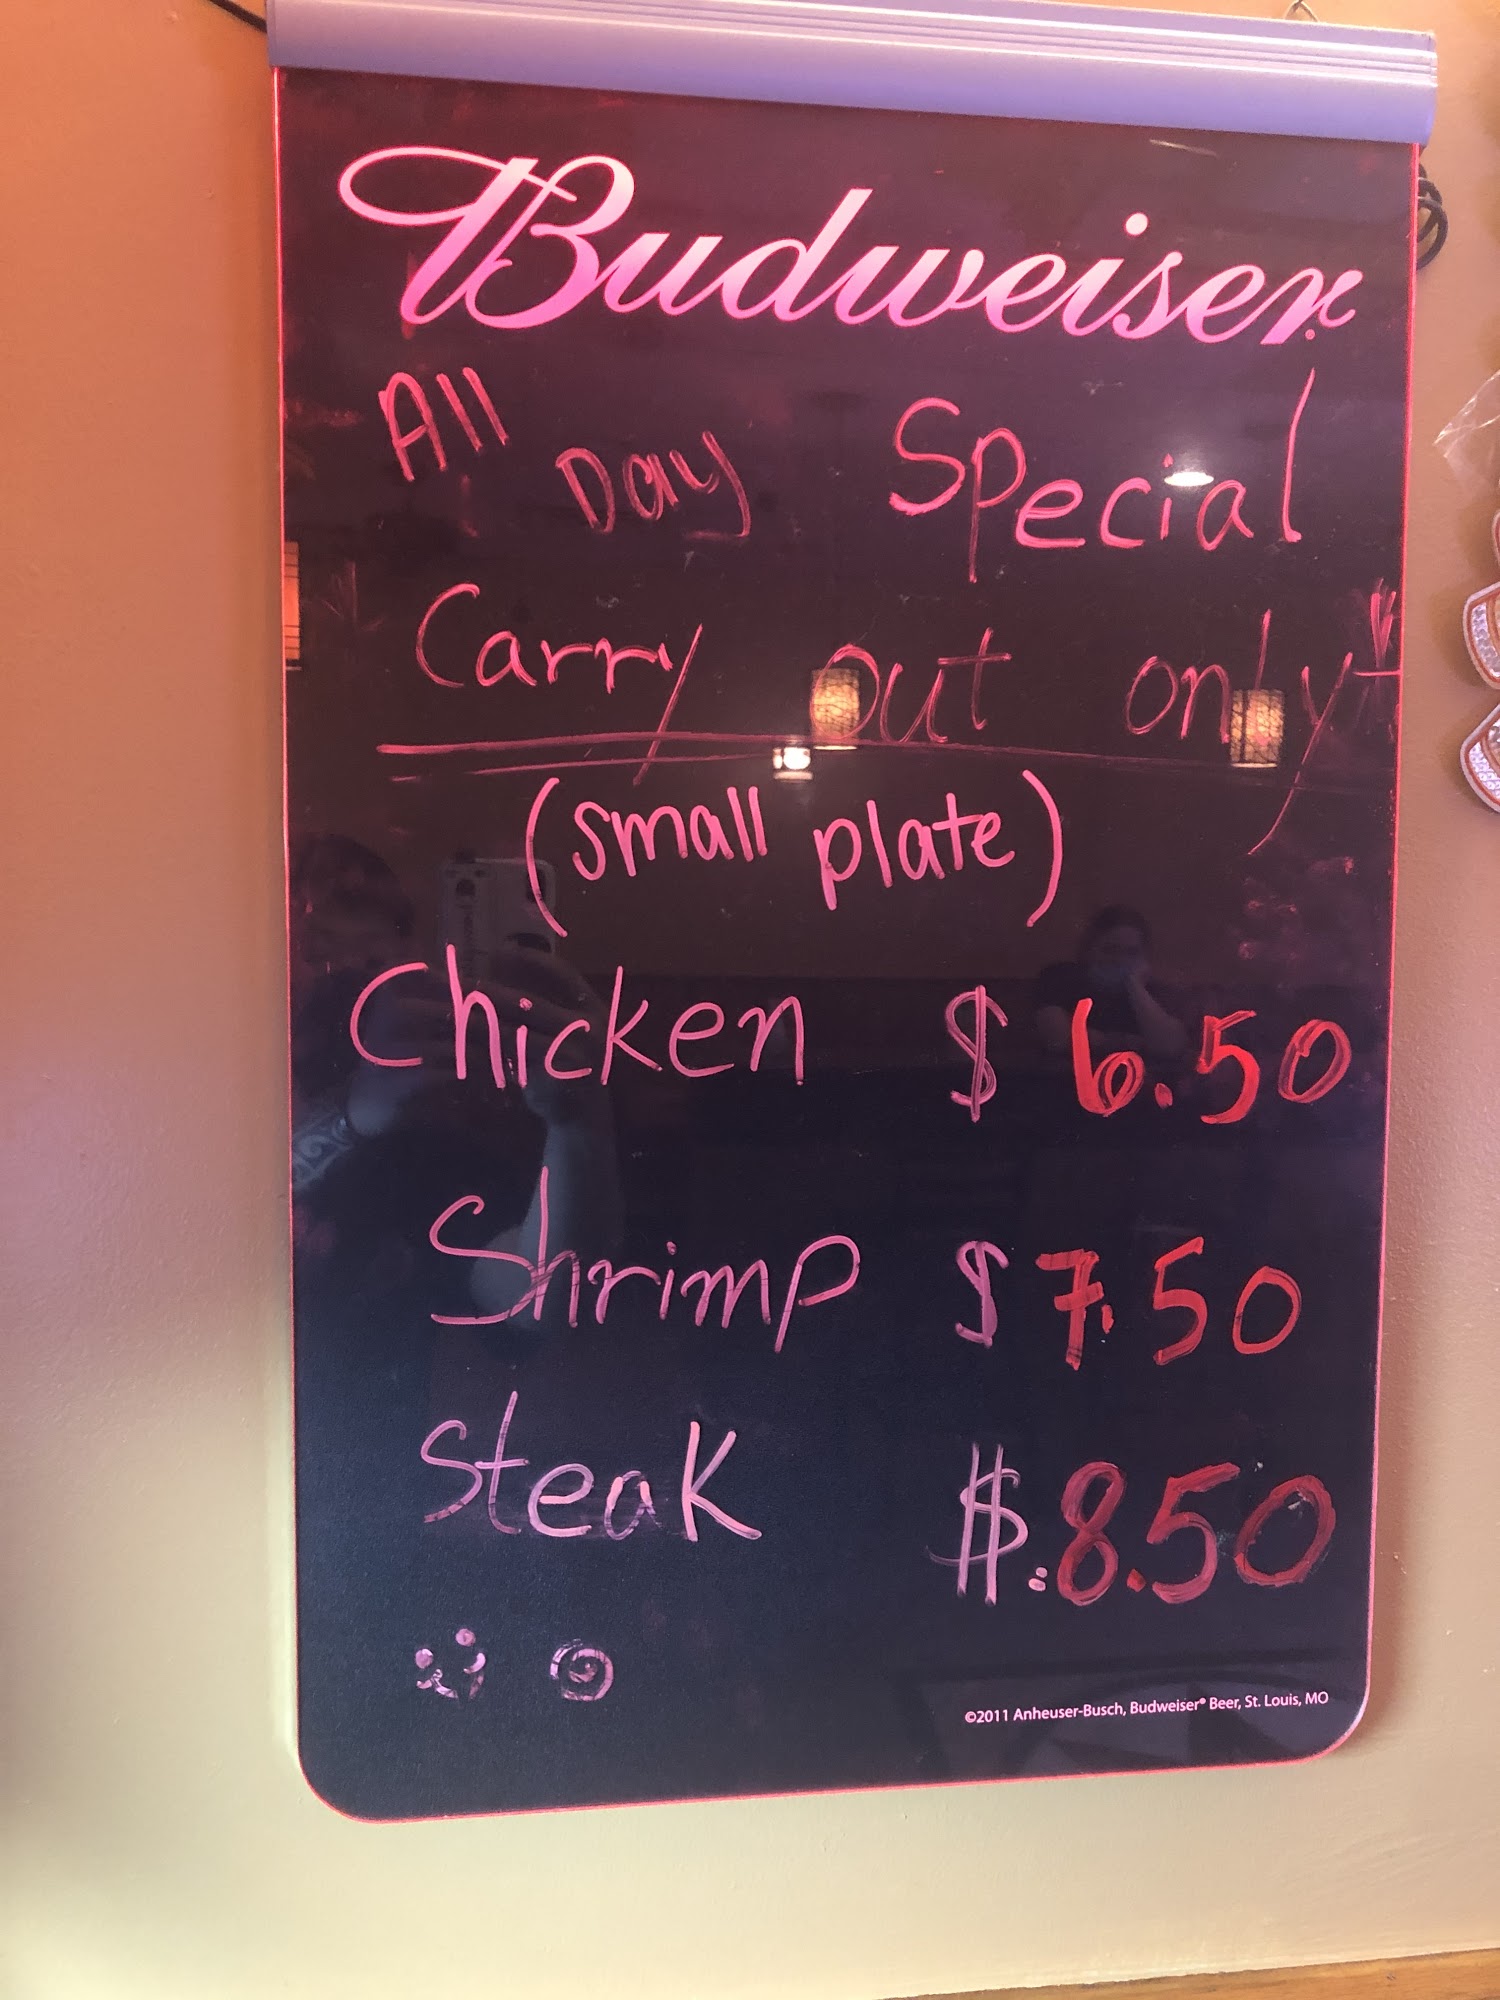 Budweiser
All Day Special
Carry out only*
(small plate)
Chicken $6.50
Shrimp $7.50
Steak $.8.50
©2011 Anheuser-Busch, Budweiser® Beer, St. Louis, MO